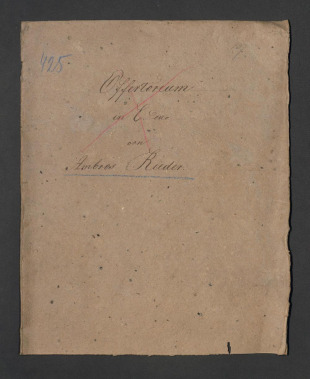 425.
Offertorium
in C Dur
von
Ambros Rieder